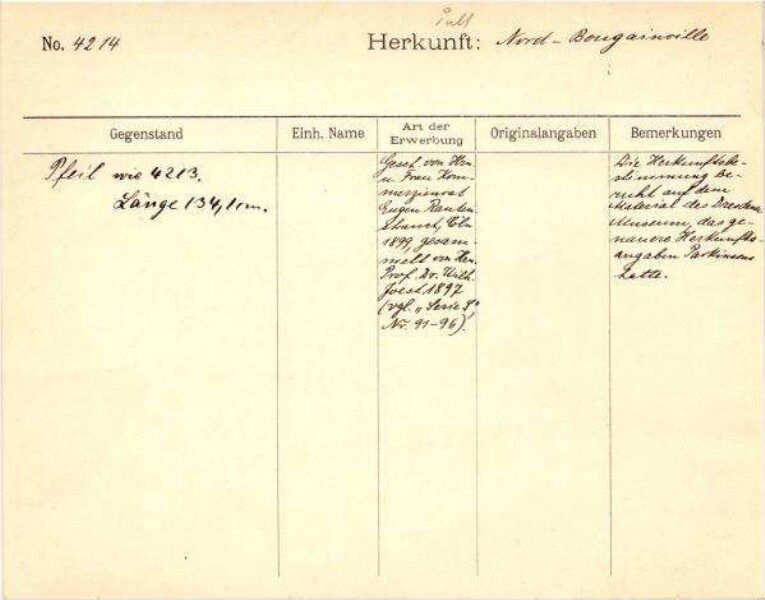 No. 4214
Herkunft: Nord-Bougainville
Gegenstand
Einh. Name
Art der Erwerbung
Originalangaben
Bemerkungen
Pfeil wie 4213.
Länge 134,1 cm.
Gesch. von Hrn
u. Frau Kom-
merzienrat
Eugen Rauten-
strauch, Cöln
1899, gesam-
melt von Hrn.
Prof. Dr. Wilh.
Joest 1897
(vgl. "Serie S",
Nr. 91-96).
Die Herkunftsbe-
stimmung be-
ruht auf dem
Material des Dresdener
Museums, das ge-
nauere Herkunfts-
angaben Parkinsons
hatte.